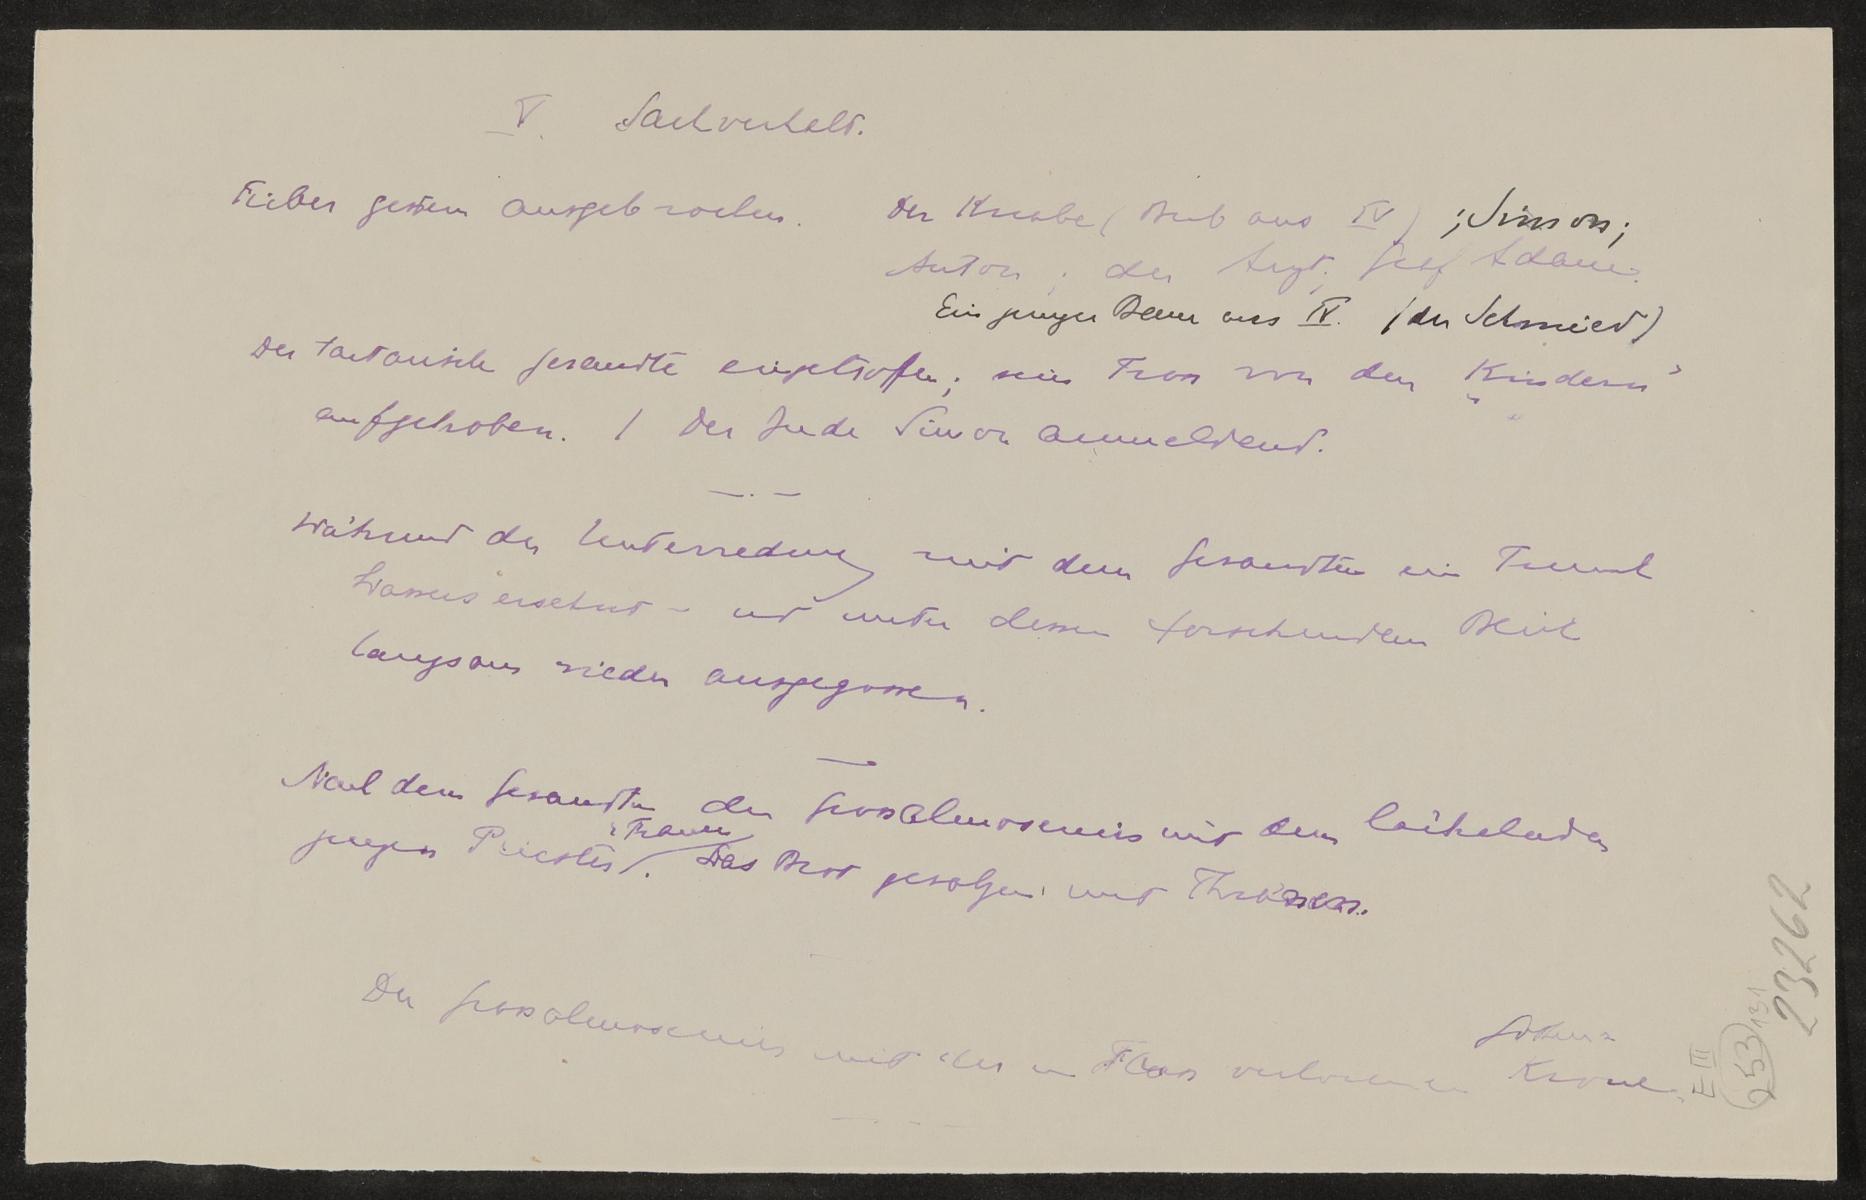 V. Sachverhalt.
Fieber gestern ausgebrochen. Der Knabe (Bub aus IV) ; Simon;
Anton; der Arzt; Graf Adam.
Ein junger Bauer aus IV. (der Schmied)
Der tartarische Gesandte eingetroffen; sein Tross von den „Kindern"
aufgehoben. / Der Jude Simon anmeldend.
Während der Unterredung mit dem Gesandten ein Trunk
Wassers ersehnt – und unter dessen forschendem Blick
langsam wieder ausgegossen.
Nach dem Gesandten der Grossalmosenier mit dem lächelnden
jungen Priester. Das Brot gesalzen mit Thränen.
Der Grossalmosenier mit der im Fluss verlorenen
Krone.
E III
253
131
23262